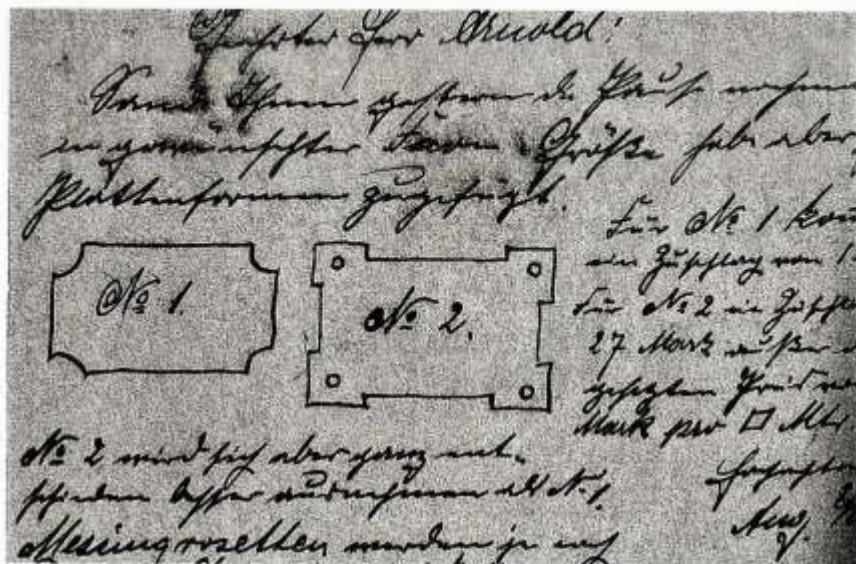 Geehrter Herr Arnold!
Sandte Ihnen gestern die Pause
in gewünschter Form Größe habe aber
Plattenformen zugefügt.
No 1.
No 2.
Für No 1
ein Zuschlag von 1
Für No 2 ein
27 Mark außer
gesetzten Preis
Mark pro □ Mtr.
No 2 wird sich aber ganz ent-
schieden besser ausnehmen als No 1
Messingrosetten werden je nach